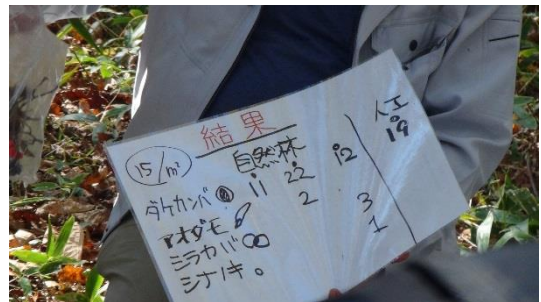 結果
15/m² 自然林 人工
ダケカンバ 11 22 12 19
アオダモ 2 3
シラカバ 1
シナノキ